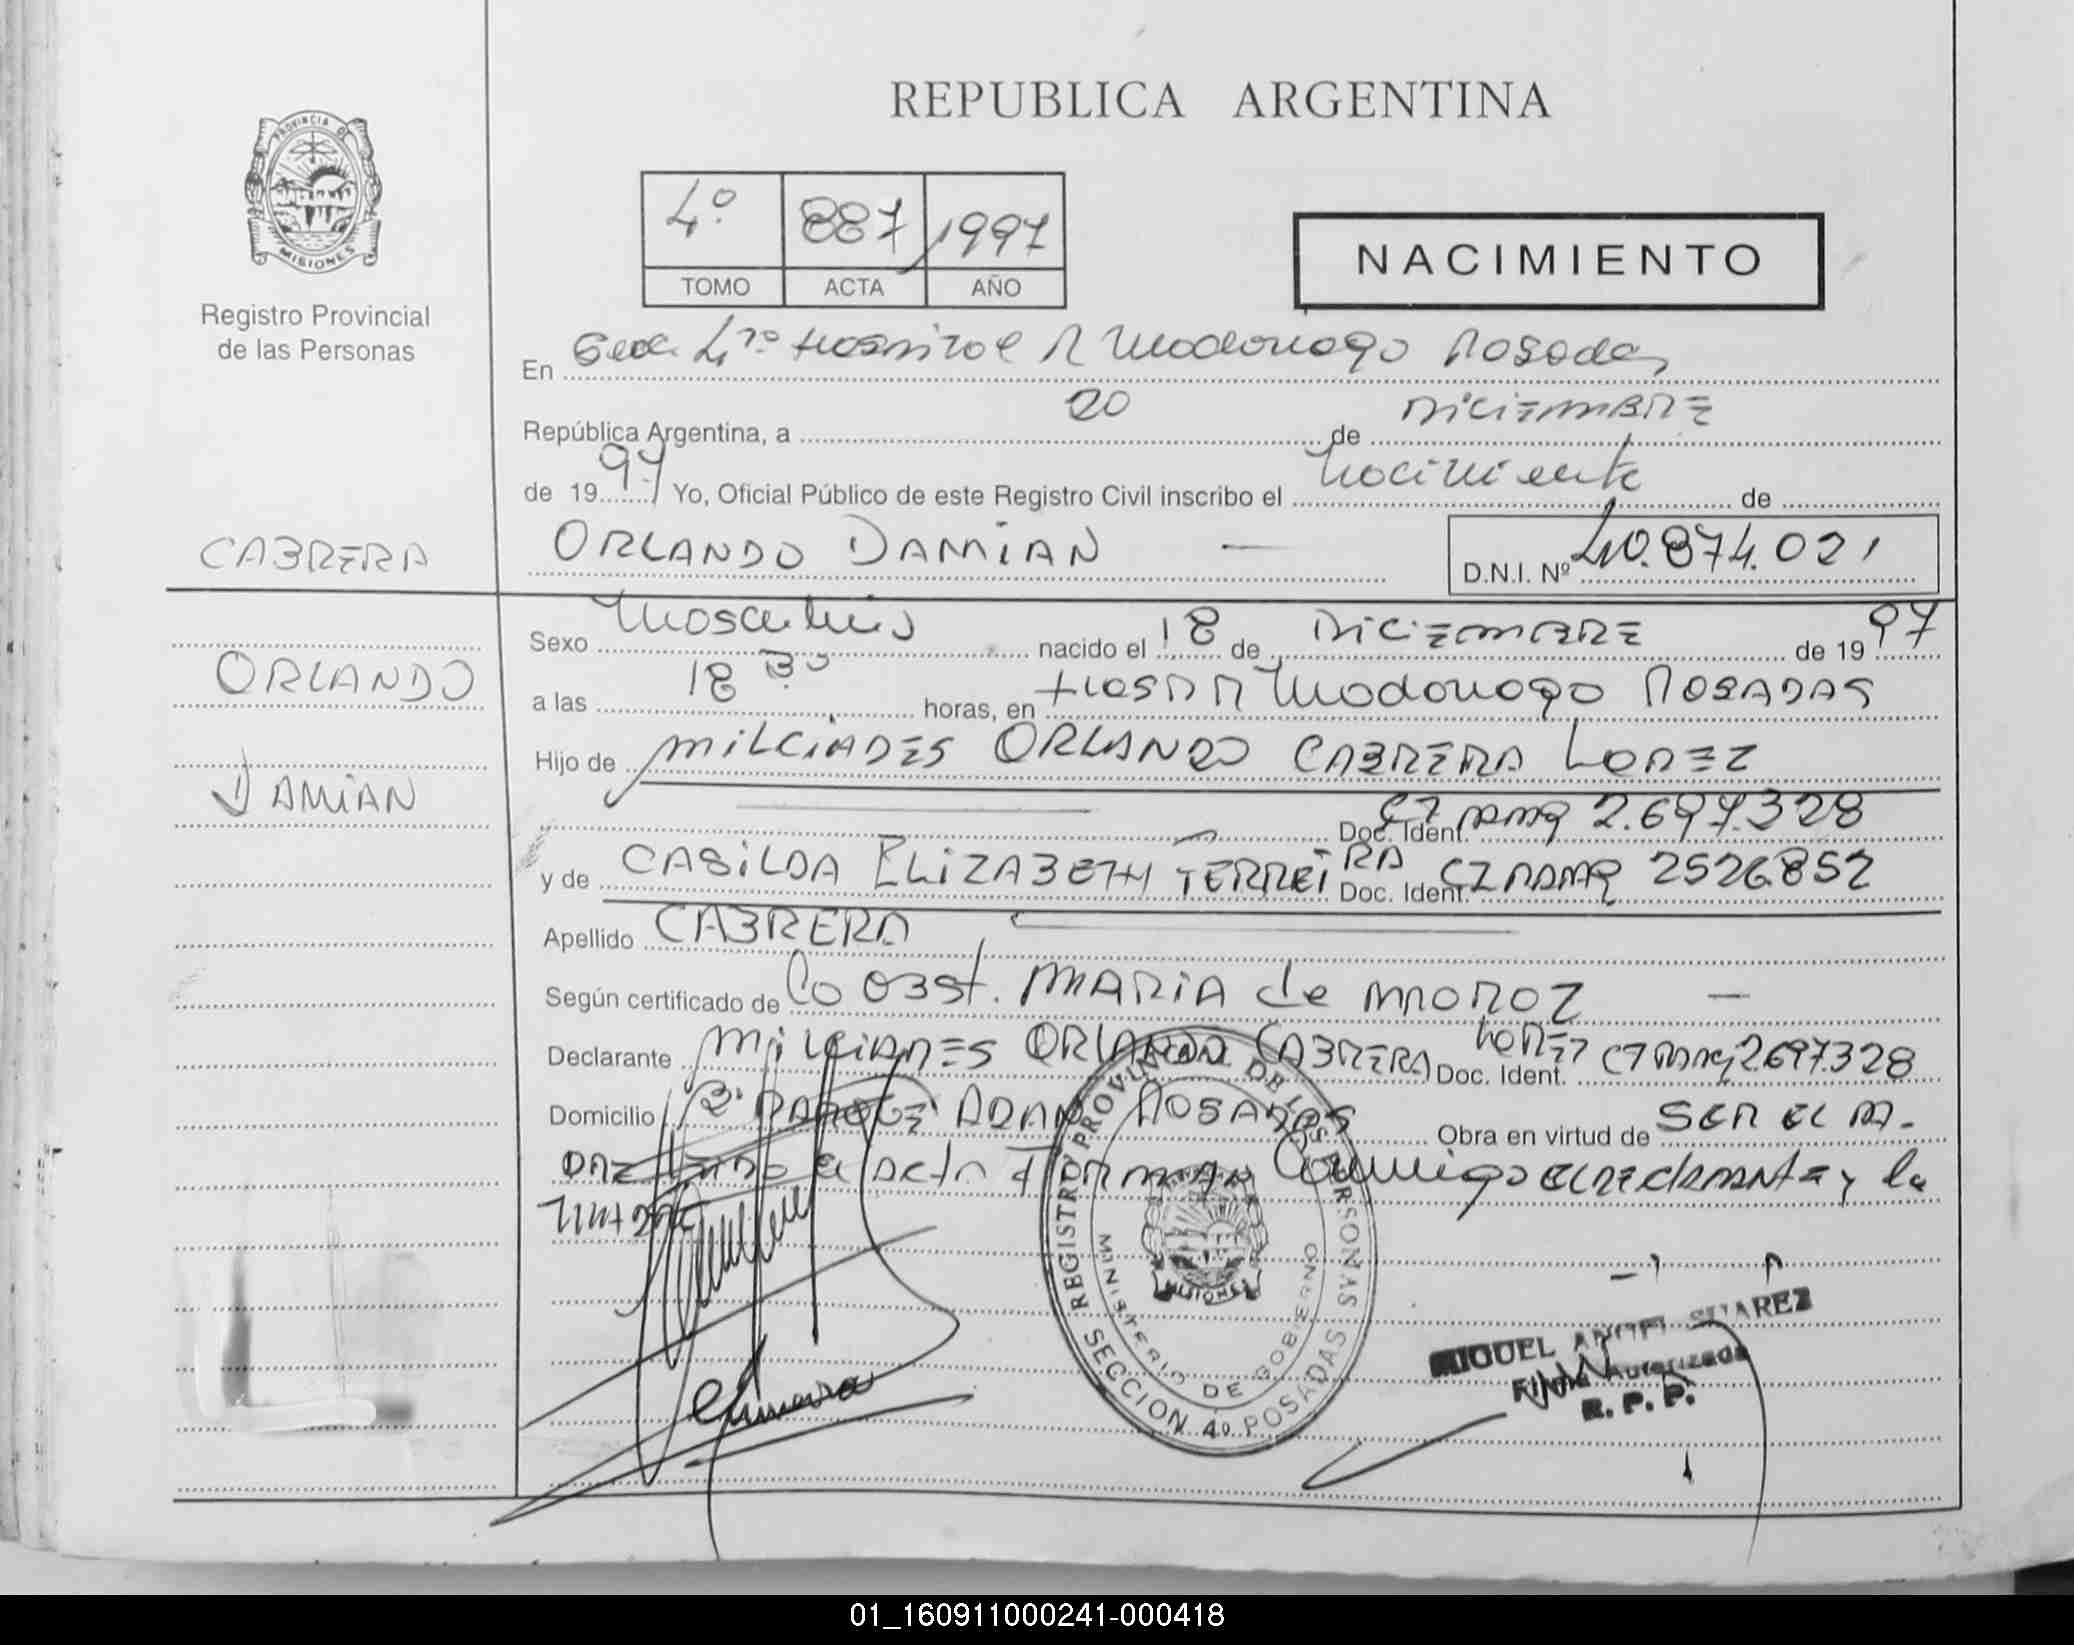 REPUBLICA ARGENTINA
PROVINCIA DE
MISIONES
Registro Provincial
de las Personas
4º 887 1997
TOMO ACTA AÑO
NACIMIENTO
En Secc 4ta Hospital R Madariaga Posadas
República Argentina, a 20 de DICIEMBRE
de 1997 Yo, Oficial Público de este Registro Civil inscribo el Nacimiento de
CABRERA
ORLANDO DAMIAN
D.N.I. Nº 40.874.021
ORLANDO
DAMIAN
Sexo Masculino nacido el 18 de DICIEMBRE de 1997
a las 18 30 horas, en HOSP R Madariaga POSADAS
Hijo de MILCIADES ORLANDO CABRERA LOPEZ
Doc. Ident. CI 2.697.328
y de CASILDA ELIZABETH FERREIRA Doc. Ident. CI 2526852
Apellido CABRERA
Según certificado de la OBST. MARIA de
Declarante MILCIADES ORLANDO CABRERA LOPEZ Doc. Ident. CI 2697.328
Domicilio Bº POSADAS Obra en virtud de SER EL PA-
DRE el acta FIRMAN Conmigo el declarante y la
REGISTRO PROVINCIAL DE LAS PERSONAS
MINISTERIO DE GOBIERNO
MISIONES
SECCION 4º POSADAS
MIGUEL ANGEL SUAREZ
Firma Autorizada
R. P. P.
01_160911000241-000418